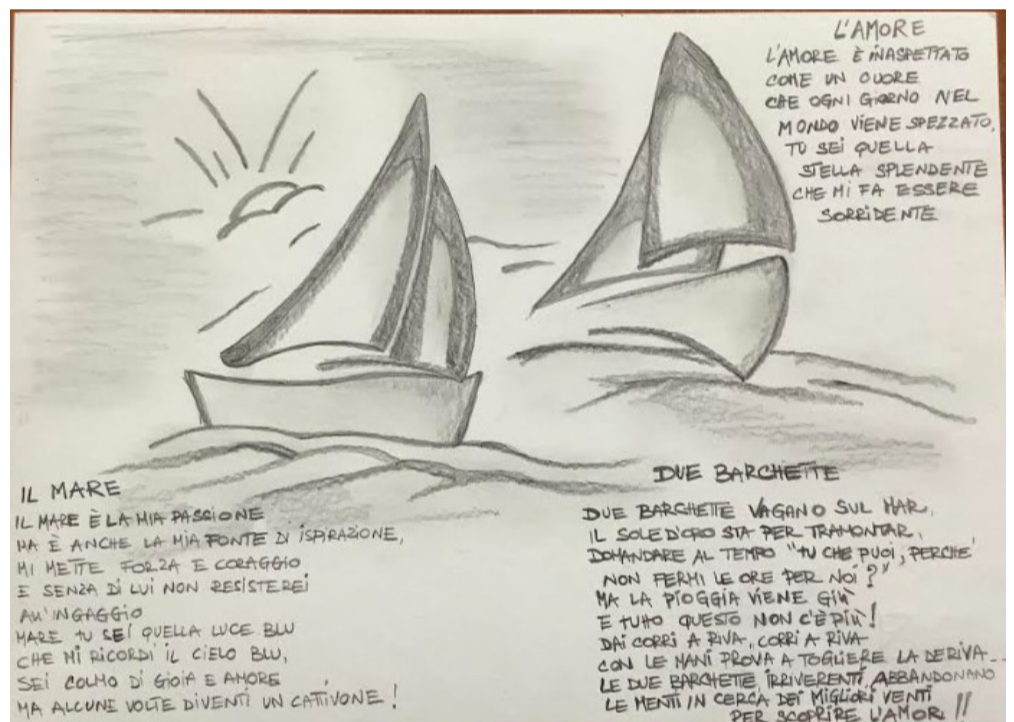 L'AMORE
L'AMORE È INASPETTATO
COME UN CUORE
CHE OGNI GIORNO NEL
MONDO VIENE SPEZZATO,
TU SEI QUELLA
STELLA SPLENDENTE
CHE MI FA ESSERE
SORRIDENTE
IL MARE
IL MARE È LA MIA PASSIONE
MA È ANCHE LA MIA FONTE DI ISPIRAZIONE,
MI METTE FORZA E CORAGGIO
E SENZA DI LUI NON RESISTEREI
ALL'INGAGGIO
MARE TU SEI QUELLA LUCE BLU
CHE MI RICORDI IL CIELO BLU,
SEI COLMO DI GIOIA E AMORE
MA ALCUNE VOLTE DIVENTI UN CATTIVONE!
DUE BARCHETTE
DUE BARCHETTE VAGANO SUL MAR,
IL SOLE D'ORO STA PER TRAMONTAR,
DOMANDARE AL TEMPO "TU CHE PUOI, PERCHÉ
NON FERMI LE ORE PER NOI?"
MA LA PIOGGIA VIENE GIÙ
E TUTTO QUESTO NON C'È PIÙ!
DAI CORRI A RIVA, CORRI A RIVA
CON LE MANI PROVA A TOGLIERE LA DERIVA...
LE DUE BARCHETTE IRRIVERENTI, ABBANDONANO
LE MENTI IN CERCA DEI MIGLIORI VENTI
PER SCOPRIRE L'AMOR!!!